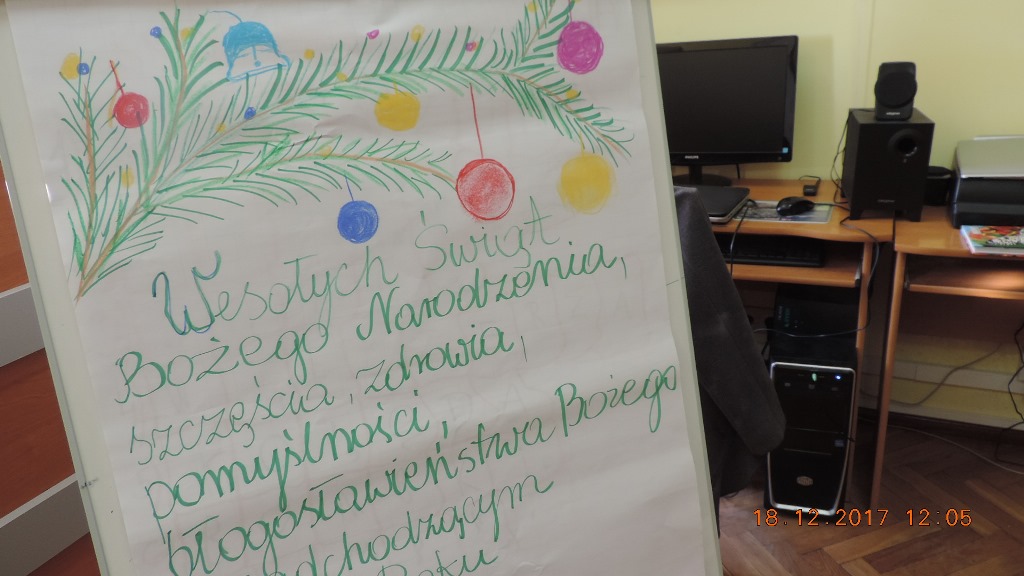 Wesołych Świąt
Bożego Narodzenia,
szczęścia, zdrowia,
pomyślności,
błogosławieństwa Bożego
Roku
PHILIPS
18.12.2017 12:05